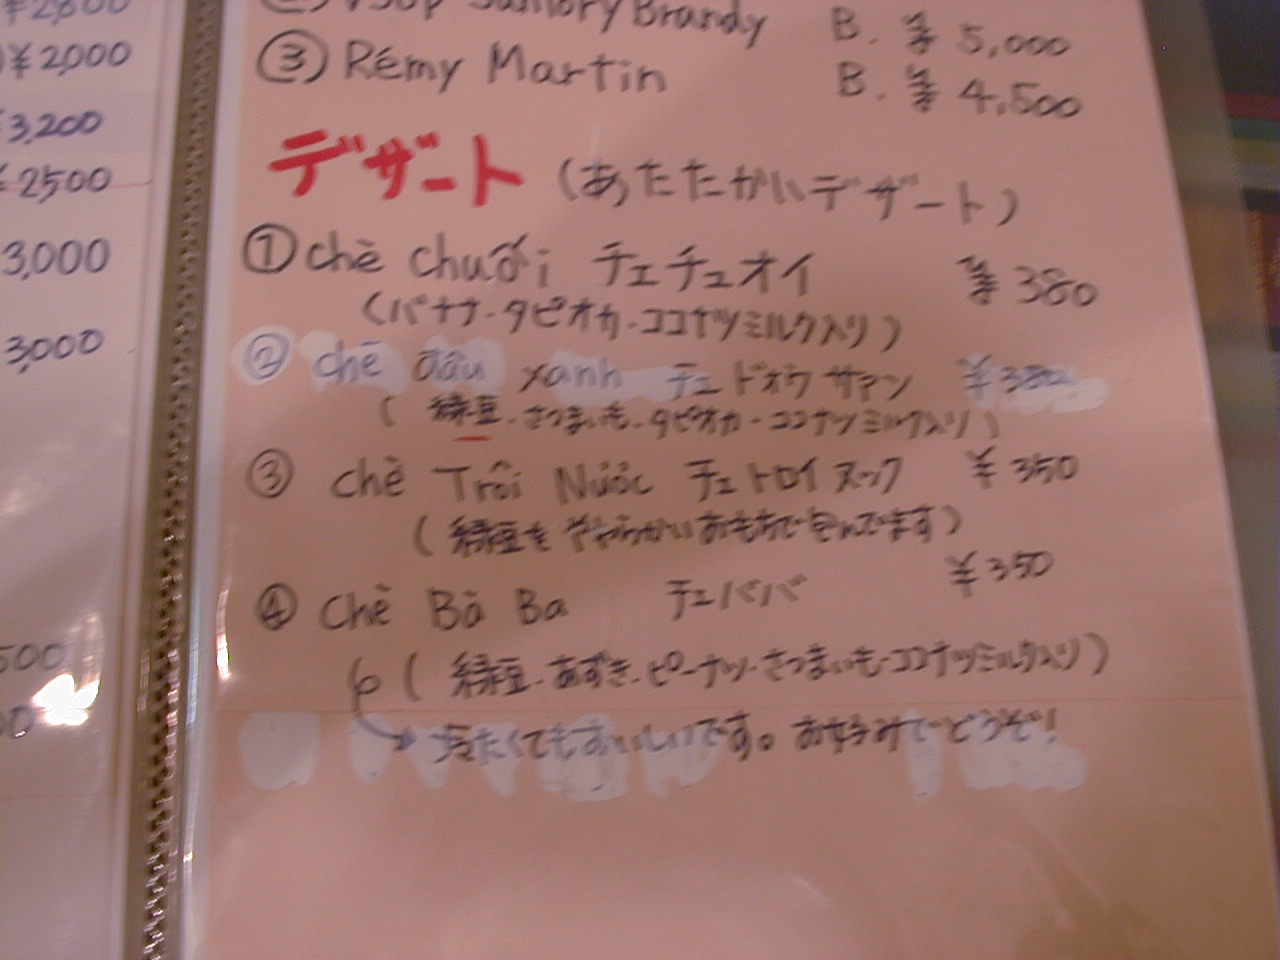 ¥2,800
¥2,000
3,200
2500
3,000
3,000
500
② VSOP Suntory Brandy B. ¥5,000
③ Rémy Martin B. ¥4,500
デザート (あたたかいデザート)
① Chè chuối チェチュオイ ¥380
(バナナ・タピオカ・ココナツミルク入り)
② chè đâu xanh チェドオウサアン ¥380
(緑豆・さつまいも・タピオカ・ココナツミルク入り)
③ Chè Trôi Nước チェトロイヌック ¥350
(緑豆をやわらかいおもちで包んでます)
④ Chè Bà Ba チェババ ¥350
(緑豆・あずき・ピーナツ・さつまいも・ココナツミルク入り)
→ 冷たくてもおいしいです。お好みでどうぞ!